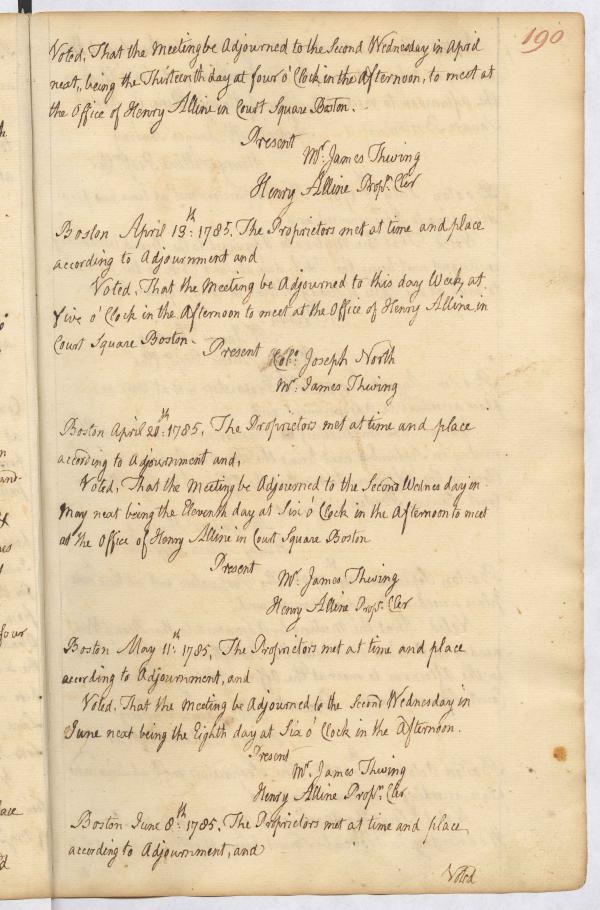 190
Voted, That the Meeting be Adjourned to the Second Wednesday in April
next, being the Thirteenth day at four o' Clock in the Afternoon, to meet at
the Office of Henry Alline in Court Square Boston.
Present
Mr. James Thwing
Henry Alline Propr. Cler
Boston April 13th: 1785. The Proprietors met at time and place
according to Adjournment and
Voted, That the Meeting be Adjourned to this day Week, at
Five o' Clock in the Afternoon to meet at the Office of Henry Alline in
Court Square Boston.
Present Colo. Joseph North
Mr. James Thwing
Boston April 20th: 1785, The Proprietors met at time and place
according to Adjournment and,
Voted, That the Meeting be Adjourned to the Second Wednesday in
May next being the Eleventh day at Six o' Clock in the Afternoon to meet
at the Office of Henry Alline in Court Square Boston
Present
Mr. James Thwing
Henry Alline Propr. Cler
Boston May 11th: 1785, The Proprietors met at time and place
according to Adjournment, and
Voted, That the Meeting be Adjourned to the Second Wednesday in
June next being the Eighth day at Six o' Clock in the Afternoon.
Present
Mr. James Thwing
Henry Alline Propr. Cler
Boston June 8th: 1785, The Proprietors met at time and place
according to Adjournment, and
Voted